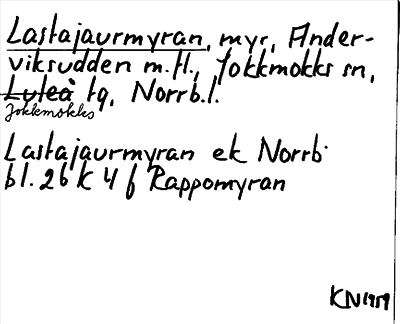 Lastajaurmyran, myr, Ander-
viksudden m.fl., Jokkmokks sn,
Luleå tg, Norrb.l.
Jokkmokks
Lastajaurmyran ek Norrb
bl. 26 K 4 f Rappomyran
KN 1959